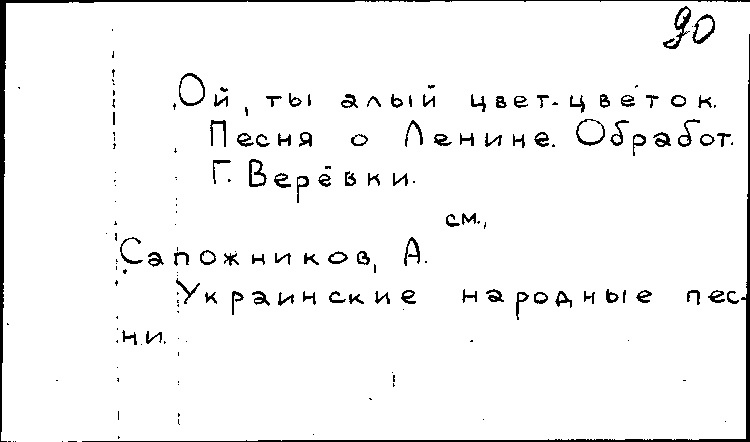 90
Ой, ты алый цвет-цветок.
Песня о Ленине. Обработ.
Г. Верёвки.
см.,
Сапожников, А.
Украинские народные пес-
ни.